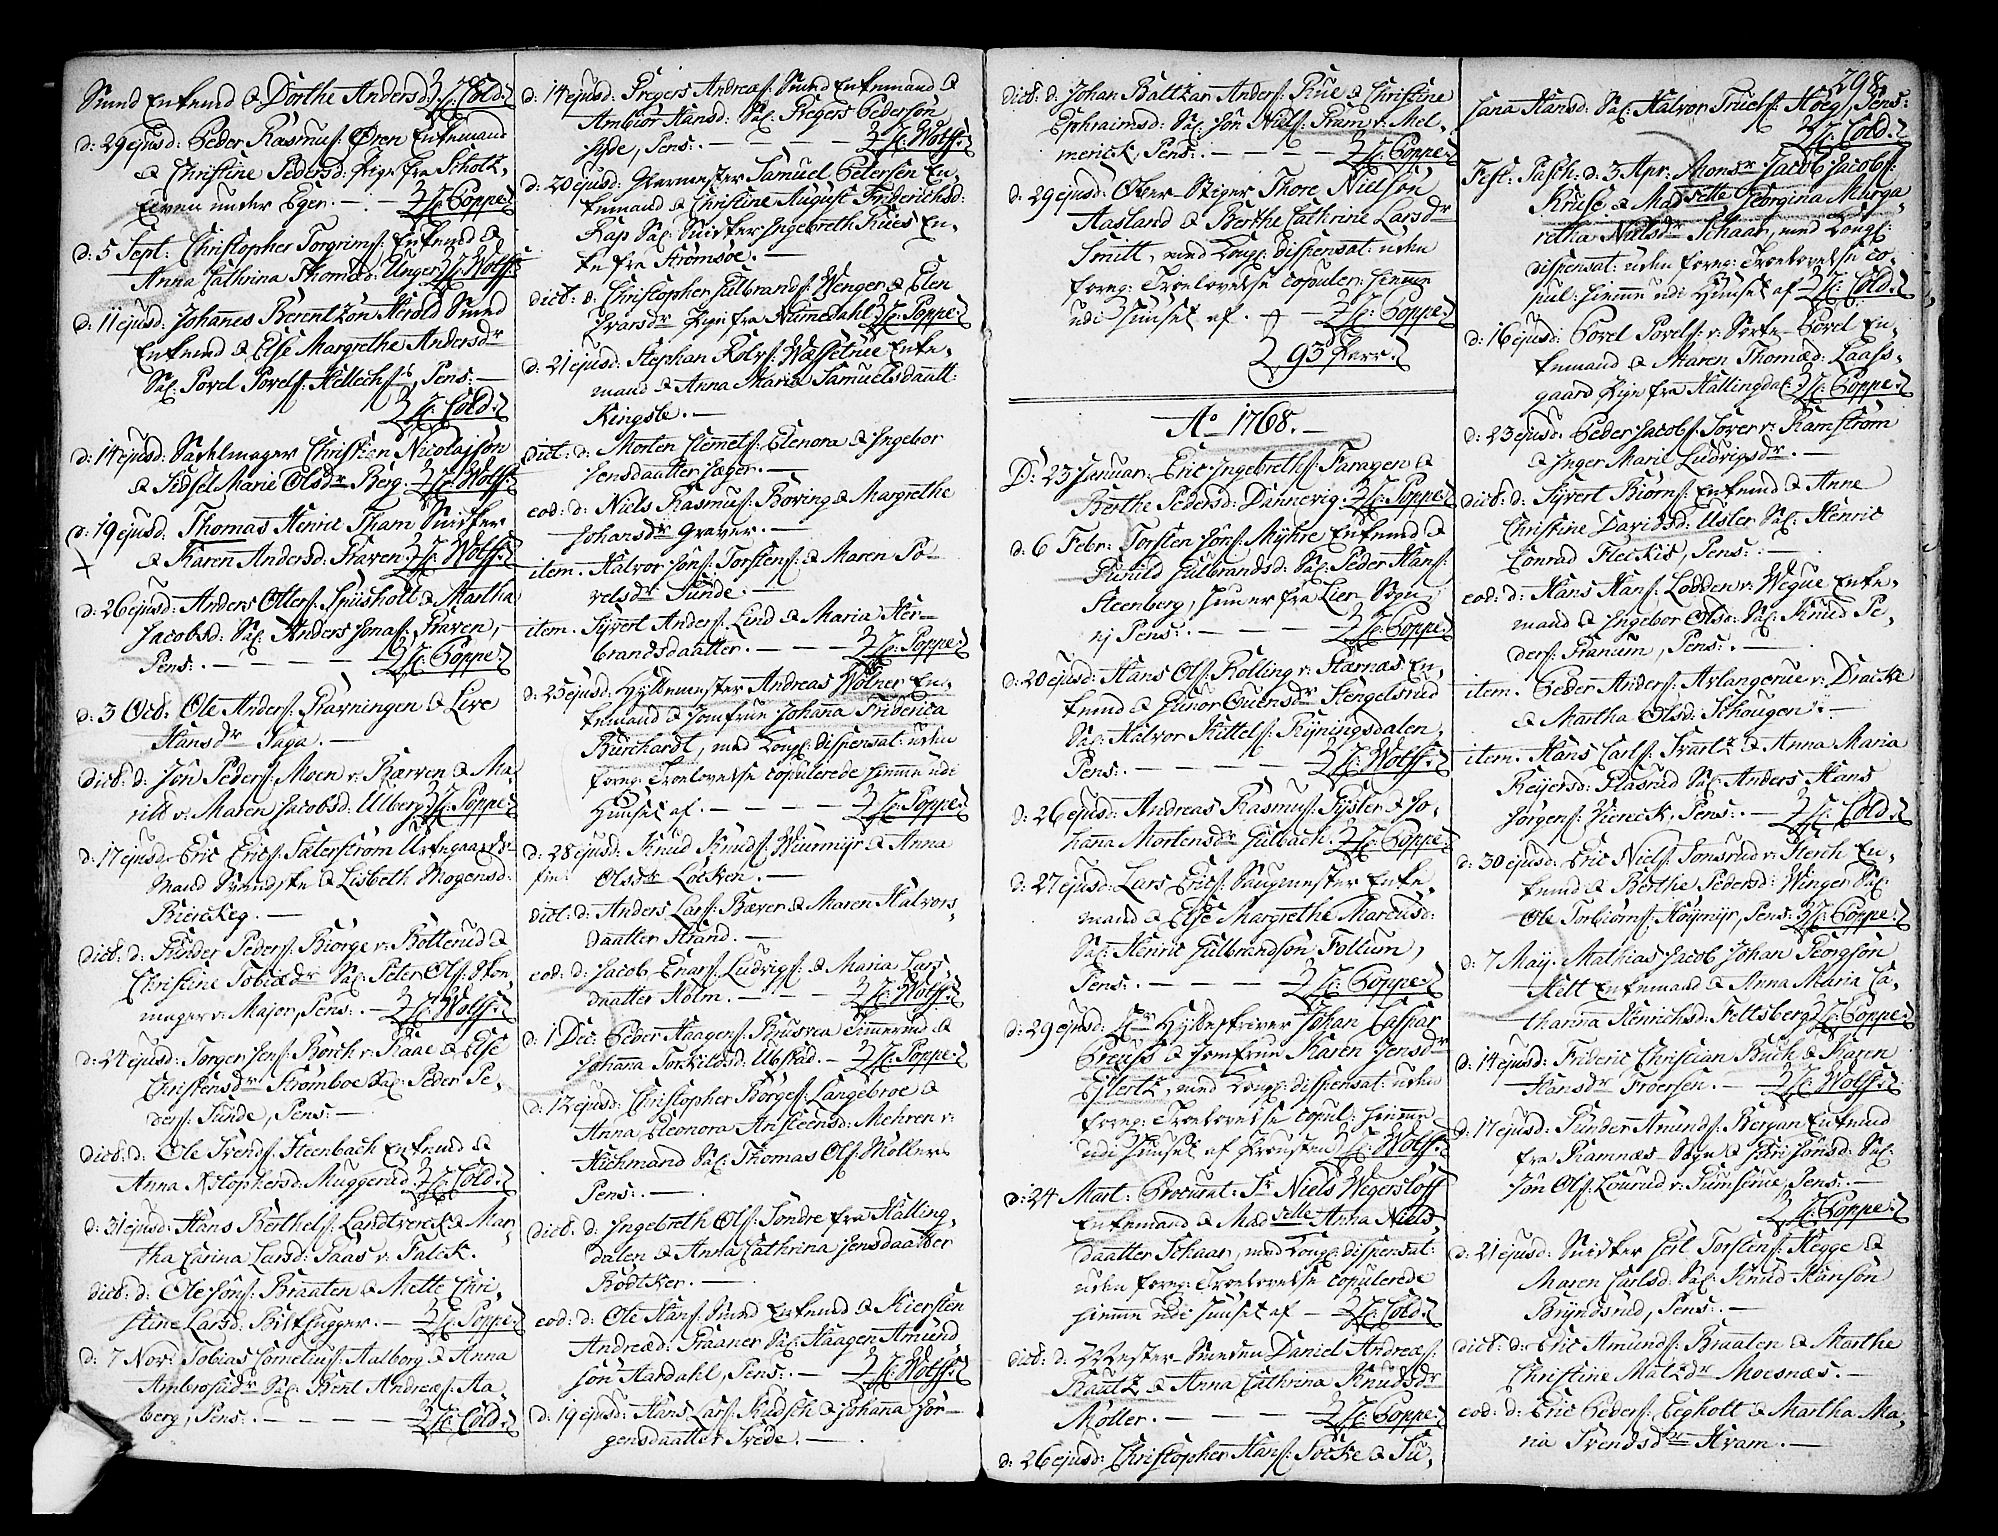 Smed Enkemd & Dorthe Andersd: /: Cold :/
d: 29 ejusd: Peder Rasmuss: Øren Enkemand
& Christine Pedersd: Pige fra Skotz,
under Eger. — /: Poppe :/
d: 5 Sept: Christopher Torgrims: Enkemd &
Anna Cathrina Thomæd: Unger /: Wolff :/
d: 11 ejusd: Johanes Berentzön Herold Smed
Enkemd & Else Margrethe Andersdr
Sal: Povel Povels: Hellechs, Pens: —
/: Cold :/
d: 14 ejusd: Christian Nicolajsön
& Sidsel Marie Olsdr Berg. /: Wolff :/
d: 19 ejusd: Thomas Henric Tham Snidker
& Karen Andersd: Praven: /: Wolff :/
d: 26 ejusd: Anders Otters: Spiisholt & Martha
Jacobsd: Sal: Anders Jonas: Praven,
Pens: — — — /: Poppe :/
d: 3 Octb: Ole Anders: Pravningen & Live
Hansdr Saga. —
dicto d: Jön Peders: Moen v: Bærven & Ma-
rill v: Maren Jacobsd: Ulberg /: Poppe :/
d: 17 ejusd: Eric Erics: Säterström
Mand Svendske & Lisbeth Mogensd:
Bierckeg. —
dicto d: Gunder Peders: Biorge v: Botterud &
Christine Tobiædr Sal: Peter Ols: Sko-
mager v: Major, Pens: — /: Wolff :/
d: 24 ejusd: Torger Jens: Borch v: Raae & Else
Christensdr Strömboe Sal: Peder Pe-
ders: Sunde, Pens: —
dicto d: Ole Svends: Steenbach Enkemd &
Anna Xstophersd: Muggerud /: Cold :/
d: 31 ejusd: Hans Berthels: Landtverck & Mar-
tha Carina Larsd: Saas v: Falck.
dicto d: Ole Jöns: Braaten & Mette Chri-
stine Larsd: Bilthugger. — /: Poppe :/
d: 7 Nov: Tobias Cornelius: Aalborg & Anna
Ambrosiidr Sal: Bent Andreæs: Aa-
berg, Pens: — — — /: Cold :/
d: 14 ejusd: Gregers Andreæs: Smed Enkemand &
Ambior Hansd: Sal: Gregers Pedersön
Hyde, Pens: — — — /: Wolff :/
d: 20 ejusd: Glarmester Samuel Petersen En-
kemand & Christine August Friderichsd:
Rap Sal: Snidker Ingebreth Rues En-
ke fra Strömsöe. —
dicto d: Christopher Gulbrands: Wenger & Elen
Ivarsdr Pige fra Numedahl /: Poppe :/
d: 21 ejusd: Stephan Rolvs: Wasselrue Enke-
mand & Anna Maria Samuelsdaatt:
Kingsle. —
dict: d: Morten Clemets: Elenora & Ingebor
Jensdaatter Jæger. —
eod: d: Niels Rasmus: Boving & Margrethe
Johansdr Graver. —
item. Halvor Jöns: Torstens: & Maren Po-
velsdr Sunde. —
item. Syvert Anders: Lind & Maria Her-
brandsdaatter. — — /: Poppe :/
d: 25 ejusd: Hyttemester Andreas Wölner En-
kemand & Jomfrue Johanna Friderica
Burchardt, med Kongl: dispensat: uden
foreg: Trolovelse copulerede hiemme udi
Huuset af. — — — /: Poppe :/
d: 28 ejusd: Knud Knuds: Wiurmyr & Anna
Olsdr Löcken. —
dict: d: Anders Lars: Bæver & Maren Halvors-
daatter Strand. —
eod: d: Jacob Enars: Ludvigs: & Maria Lars-
daatter Holm. — — — /: Wolff :/
d: 1 Dec: Peder Haagens: Brusvea Timmermd &
Johanna Torkildsd: Ubstad. — /: Poppe :/
d: 12 ejusd: Christopher Börges: Langebroe &
Anna Eleonora Ansteensd: Mehren v:
Hichmand Sal: Thomas Ols: Möllers
Pens: —
dicto d: Ingebreth Ols: Söndre fra Halling-
dalen & Anna Cathrina Jensdaatter
Bödtker. —
eod: d: Ole Hans: Smed Enkemd & Kiersten
Andreæd: Graaner Sal: Haagen Amund-
sön Aardahl, Pens: — /: Wolff :/
d: 19 ejusd: Hans Lars: Kudsch & Johanna Jör-
gensdaatter Svede. —
dicto d: Johan Baltzar Anders: Rue & Christine
Ephraimsd: Sal: Jön Niels: Fram v: Mel-
merick, Pens: — — — /: Poppe :/
d: 29 ejusd: Ober Stiger Thore Nielsön
Aasland & Berthe Cathrine Larsdr
Smitt, med Kongl: dispensat: uden
foreg: Troelovelse copuler: hiemme
udi Huuset af. — /: Poppe :/
/: 93 Parr :/
Ao 1768. —
D: 23 Januar: Eric Ingebreths: Faragen &
Berthe Pedersd: Dannevig. /: Poppe :/
d: 6 Febr: Torsten Jöns: Myhre Enkemd &
Gunild Gulbrandsd: Sal: Peder Hans:
Steenberg, hun er fra Lier Sogn,
ej Pens: — — — /: Poppe :/
d: 20 ejusd: Hans Ols: Kolling v: Stærnæs En-
kemd & Gunor Gutensdr Stengelsrud
Sal: Halvor Kittels: Ryningsdalen,
Pens: — — — — /: Wolff :/
d: 26 ejusd: Andreas Rasmus: Fyster & Jo-
hana Mortensdr Gulbach: /: Poppe :/
d: 27 ejusd: Lars Erics: Saugmester Enke-
mand & Else Margrethe Marcusd:
Sal: Henric Gulbrandsön Follum,
Pens: — — — — /: Poppe :/
d: 29 ejusd: Sr Hytteskriver Johan Caspar
Preuss & Jomfrue Karen Jensdr
Eilertz, med Kongl: dispensat: uden
foreg: Troelovelse copul: hiemme
udi Huuset af Provsten /: Wolff :/
d: 24 Mart: Procurat: Sr Niels Wegersloff
Enkemand & Madselle Anna Niels-
daatter Schaar, med Kongl: dispensat:
uden foreg: Troelovelse copulerede
hiemme udi Huuset af — /: Cold :/
dicto d: Mester Smeden Daniel Andreæs:
Rautz & Anna Cathrina Knudsdr
Möller. — — — — /: Poppe :/
d: 26 ejusd: Christopher Hans: Socke & Su-
298
sana Hansd: Sal: Halvor Truels: Hoeg, Pens:
/: Cold :/
Fest: Pasch: d: 3 Apr: Monsr Jacob Jacobs:
Kruse & Madselle Georgina Marga-
retha Nielsdr Schaar, med Kongl:
dispensat: uden foreg: Troelovelse co-
pul: hiemme udi Huuset af /: Cold :/
d: 16 ejusd: Povel Povels: v: Sorte-Povel En-
kemand & Maren Thomæd: Laass-
gaard Pige fra Hallingdal: /: Poppe :/
d: 23 ejusd: Peder Jacobs: Sorer v: Ramström
& Inger Marie Ludvigsdr. —
dicto d: Syvert Biörns: Enkemd & Anne
Christine Davidsd: Usler Sal: Henric
Conrad Fleckis, Pens: —
eod: d: Hans Hans: Lobben v: Wegue Enke-
mand & Ingebor Olsd: Sal: Knud Pe-
ders: Granum, Pens: —
item. Peder Anders: Arlangerue v: Dracke
& Martha Olsd: Schougen: —
item. Hans Carls: Svartz & Anna Maria
Reijersd: Plasrud Sal: Anders Hans
Jörgens: Vienick, Pens: — /: Cold :/
d: 30 ejusd: Eric Niels: Tomsrud v: Sterch En-
kemd & Berthe Pedersd: Winger Sal:
Ole Torbiörns: Höymyr, Pens: /: Poppe :/
d: 7 Maij. Mathias Jacob Johan Georgsön
Hett Enkemand & Anna Maria Ca-
tharina Henrichsd: Feltsberg /: Poppe :/
d: 14 ejusd: Frideric Christian Buch & Karen
Hansdr Troersen. — /: Wolff :/
d: 17 ejusd: Gunder Amunds: Bergan Enkemd
fra Ramnæs Sogn & Siri Jönsd: Sal:
Jön Ols: Lourud v: Gumserue, Pens: —
/: Poppe :/
d: 21 ejusd: Snidker Carl Torstens: Hegge &
Maren Carlsd: Sal: Knud Hansön
Bryndsrud, Pens: —
dicto d: Eric Amunds: Braaten & Marthe
Christine Matzdr Moesnæs. —
eod: d: Eric Peders: Eegholt & Martha Ma-
ria Svendsdr Hvam. —